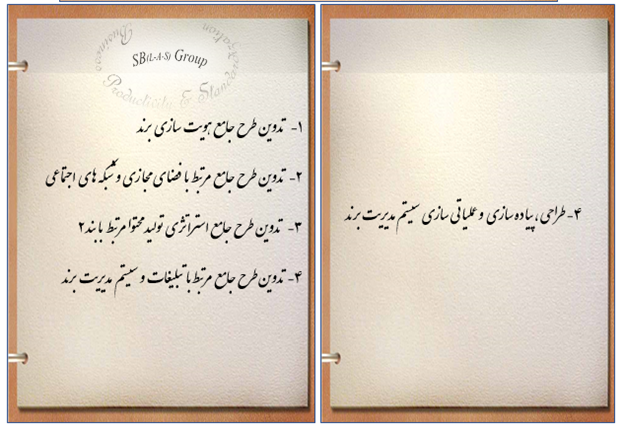 Business
Organization
SB(L-A-S) Group
Productivity & Standard
۱- تدوین طرح جامع هویت سازی برند
۲- تدوین طرح جامع مرتبط با فضای مجازی و شبکه های اجتماعی
۳- تدوین طرح جامع استراتژی تولید محتوا مرتبط با بند۲
۴- تدوین طرح جامع مرتبط با تبلیغات و سیستم مدیریت برند
۴- طراحی، پیاده سازی و عملیاتی سازی سیستم مدیریت برند